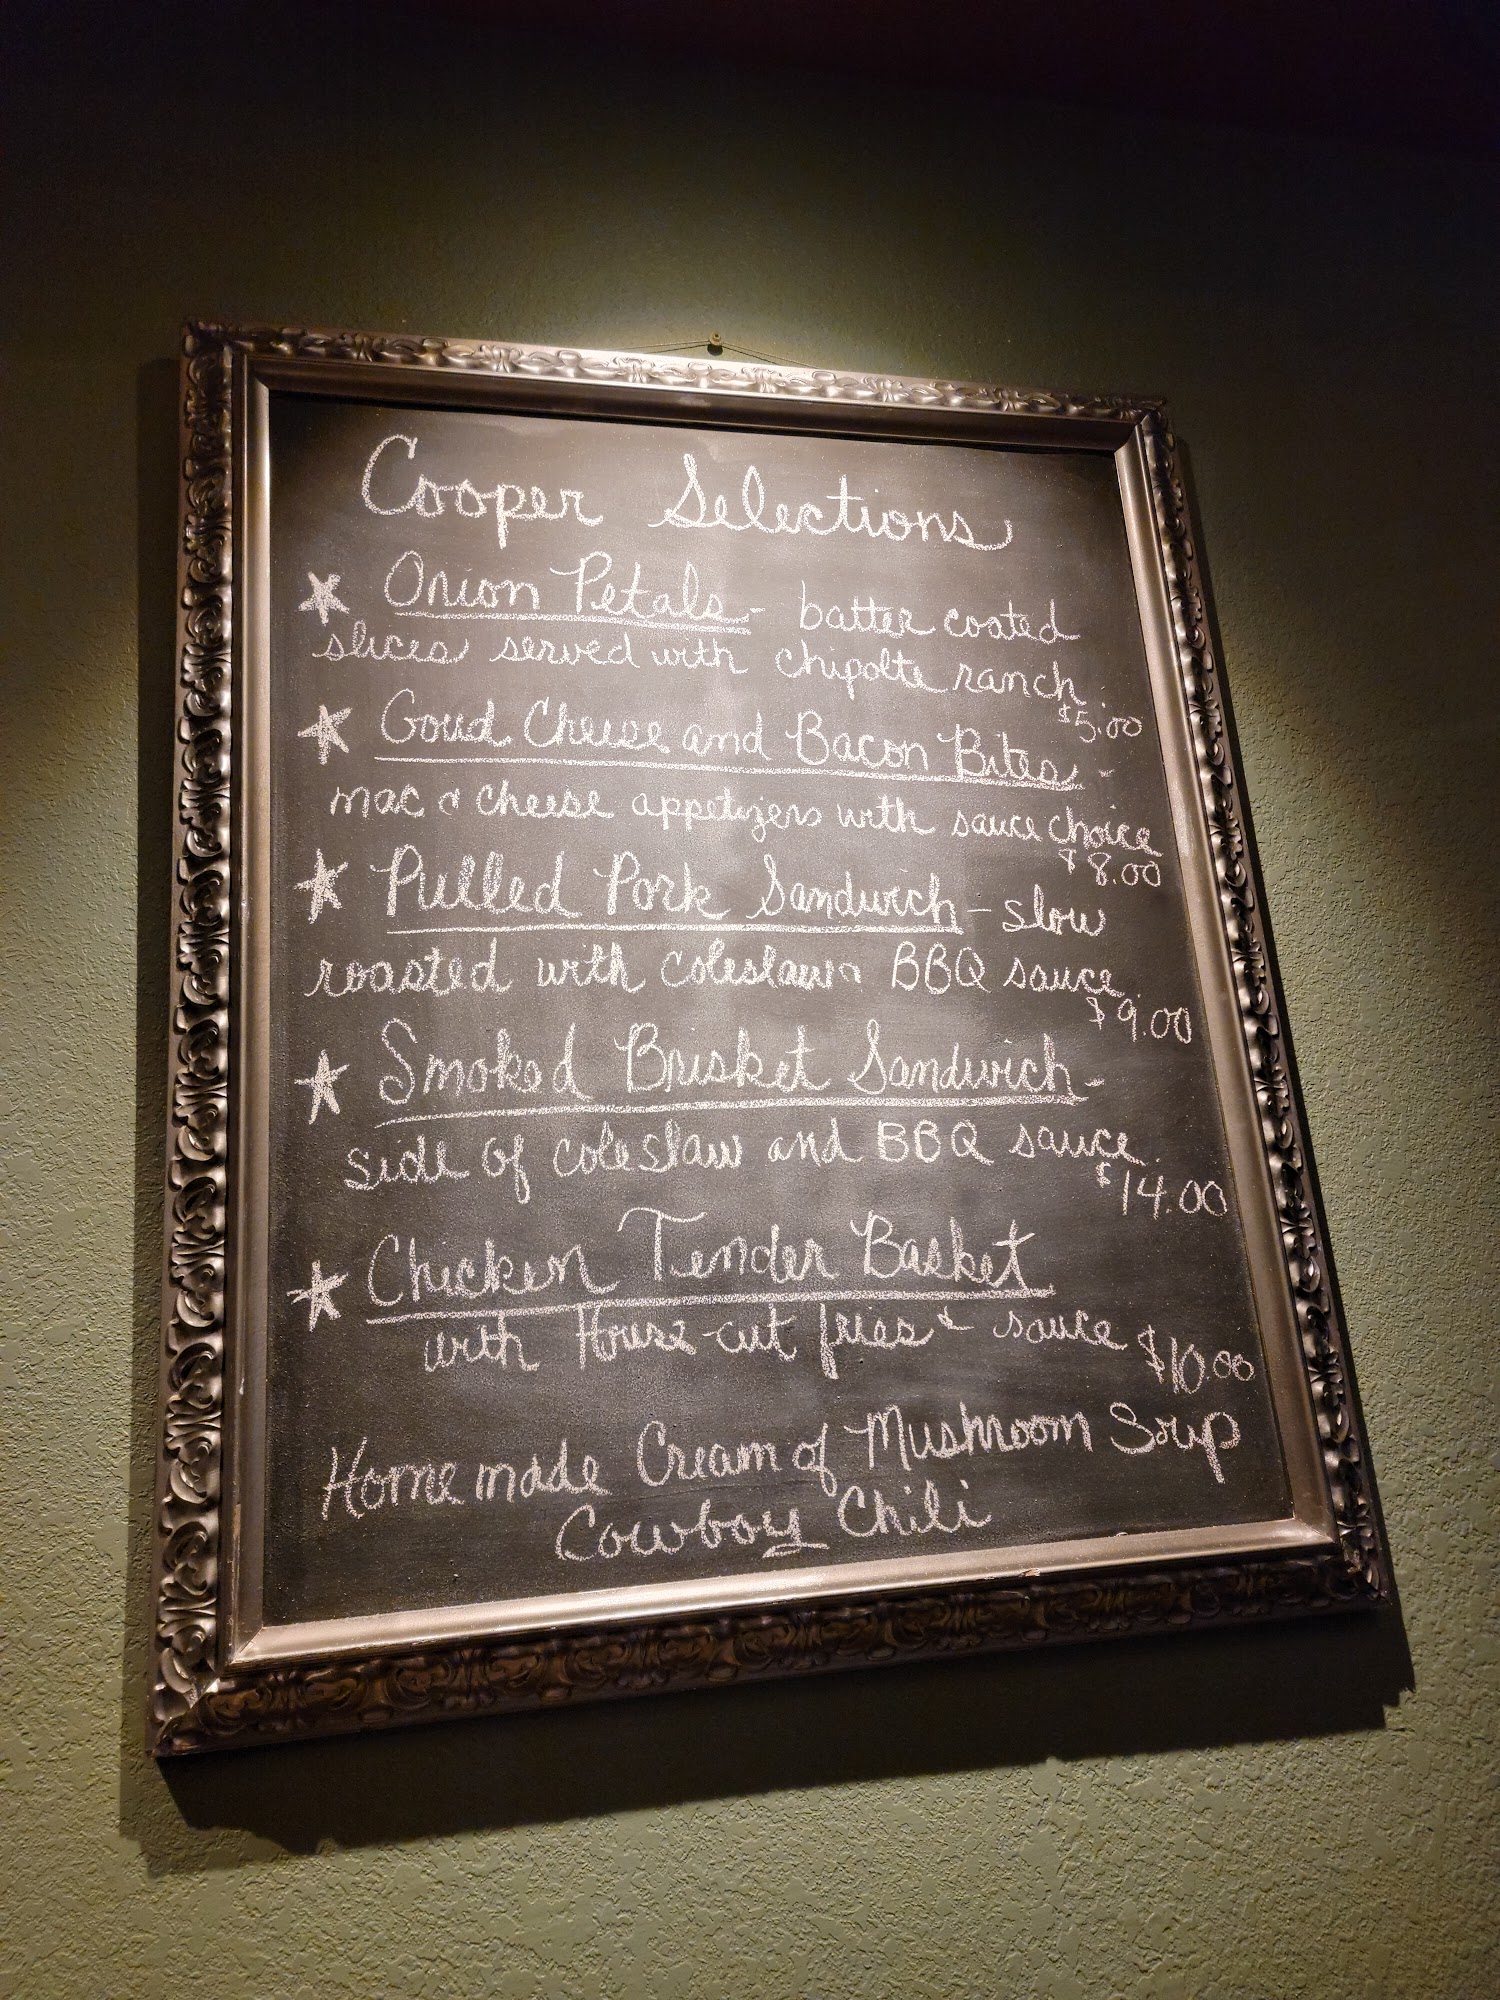 Cooper Selections
Onion Petals - batter coated
slices served with chipolte ranch
$5.00
Goud Cheese and Bacon Bites -
mac & cheese appetizers with sauce choice
$8.00
Pulled Pork Sandwich - slow
roasted with coleslaw & BBQ sauce.
$9.00
Smoked Brisket Sandwich -
side of coleslaw and BBQ sauce.
$14.00
Chicken Tender Basket
with House-cut fries & sauce $10.00
Homemade Cream of Mushroom Soup
Cowboy Chili